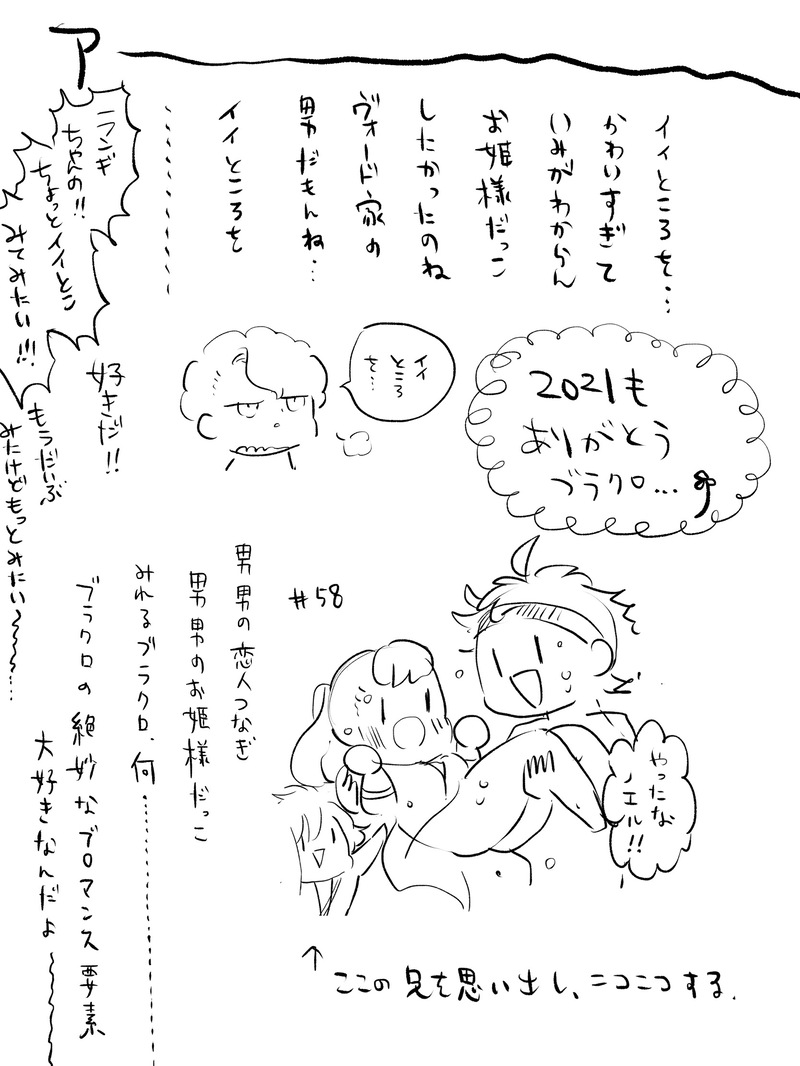 ア
イイところを…
かわいすぎて
いみがわからん
お姫様だっこ
したかったのね
ヴォード家の
男だもんね…
イイところを
…………
ちゃんの!!
ちょっとイイとこ
みてみたい!!!
イイ
ところ
を…
好きだ!!
もうだいぶ
みたけどもっとみたい〜〜〜…
2021も
ありがとう
ブラクロ…
#58
男男の恋人つなぎ
男男のお姫様だっこ
みれるブラクロ、何…………
ブラクロの絶妙なブロマンス要素
大好きなんだよ〜〜〜
やったな
ノエル!!
↑ここの兄を思い出し、ニコニコする.